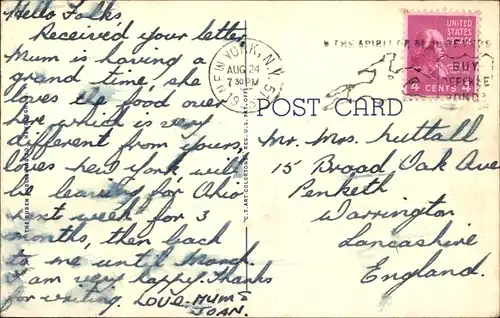 Hello Folks
Received your letter,
Mum is having a
grand time, she
loves the food over
here which is very
different from yours,
loves New York, will
be leaving for Ohio
next week for 3
months, then back
to me until March.
I am very happy. Thanks
for writing. LOVE - MUM &
JOAN.
NEW YORK, N.Y.
AUG 24
7 30 PM
BUY
DEFENSE
BONDS
UNITED
STATES
4 CENTS 4
POST CARD
Mr. Mrs. Nuttall
15 Broad Oak Ave
Penketh
Warrington
Lancashire
England.